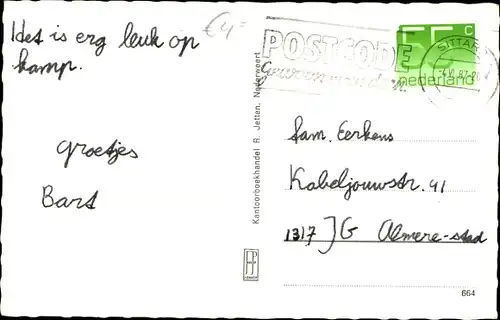 Het is erg leuk op
kamp.
groetjes
Bart
€4=
POSTCODE
Gewoon
55 c
nederland
SITTARD
Kantoorboekhandel R. Jetten, Nederweert
fam. Eerkens
Kabeljouwstr. 41
1317 JG Almere-stad
664